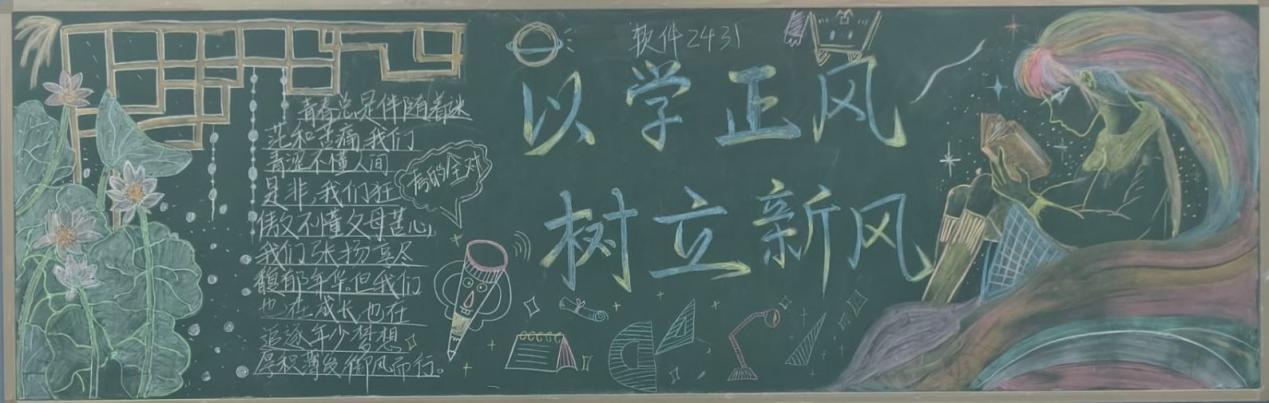 软件2431
以学正风
树立新风
青春总是伴随着迷
茫和苦痛,我们
青涩不懂人间
是非,我们狂
傲又不懂父母苦心,
我们张扬享尽
馥郁年华但我们
也在成长也在
追逐年少梦想
厚积薄发御风而行。